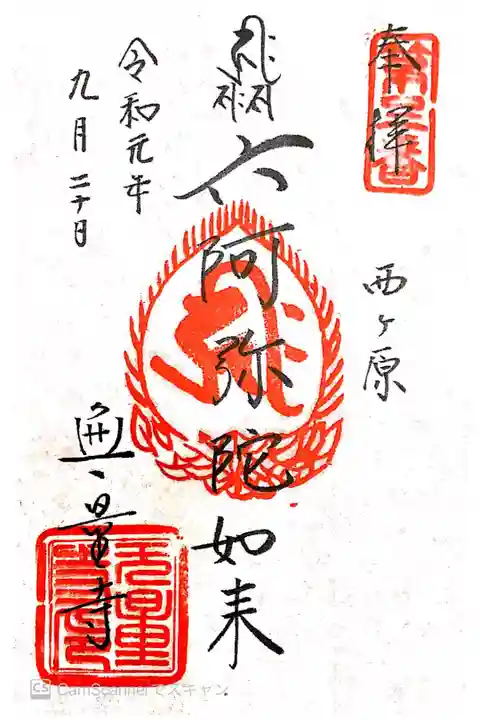 奉拝
第三番
西ヶ原
六阿弥陀如来
令和元年
九月二十日
無量寺
CamScannerでスキャン